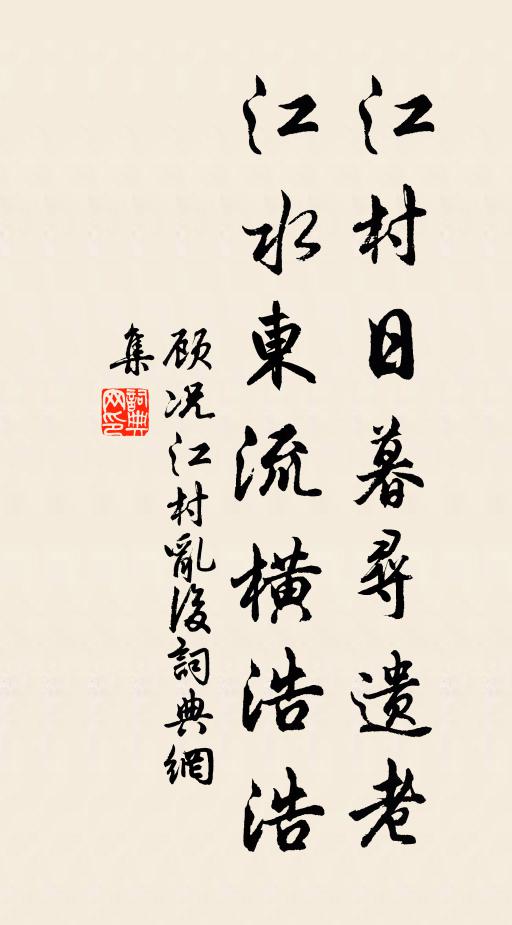 江村日暮尋遺老
江水東流橫浩浩
顾况江村亂後詞典網
集
詞典
网印